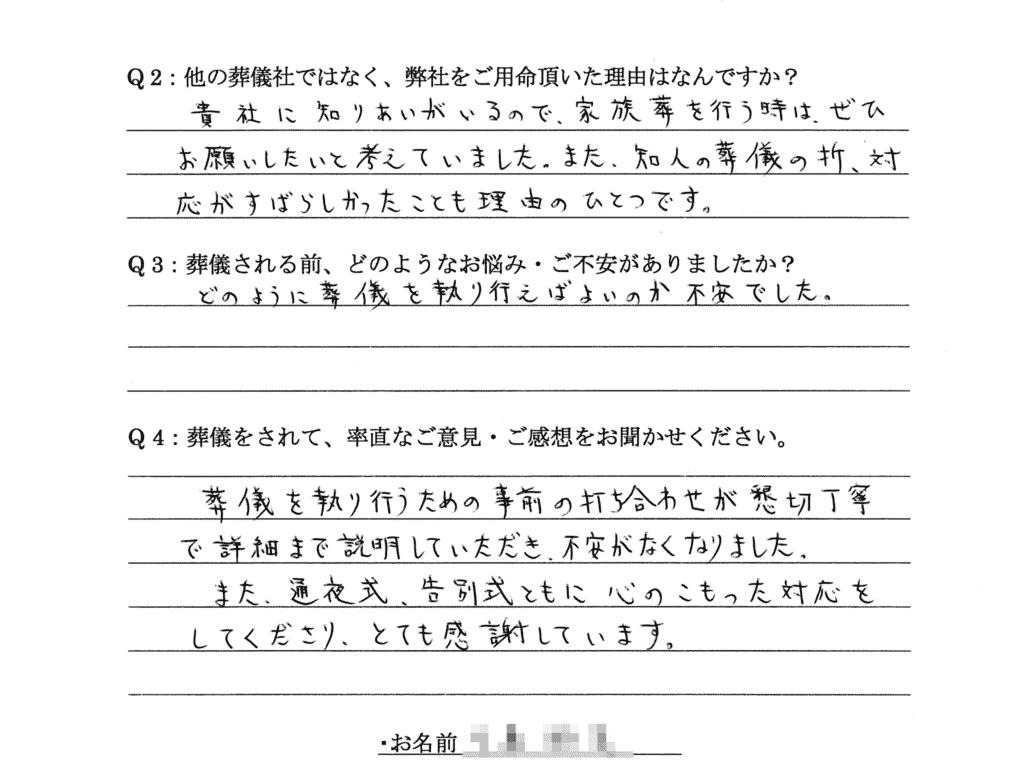 Q2：他の葬儀社ではなく、弊社をご用命頂いた理由はなんですか？
貴社に知りあいがいるので、家族葬を行う時は、ぜひ
お願いしたいと考えていました。また、知人の葬儀の折、対
応がすばらしかったことも理由のひとつです。
Q3：葬儀される前、どのようなお悩み・ご不安がありましたか？
どのように葬儀を執り行えばよいのか不安でした。
Q4：葬儀をされて、率直なご意見・ご感想をお聞かせください。
葬儀を執り行うための事前の打ち合わせが懇切丁寧
で詳細まで説明していただき、不安がなくなりました。
また、通夜式、告別式ともに心のこもった対応を
してくださり、とても感謝しています。
・お名前